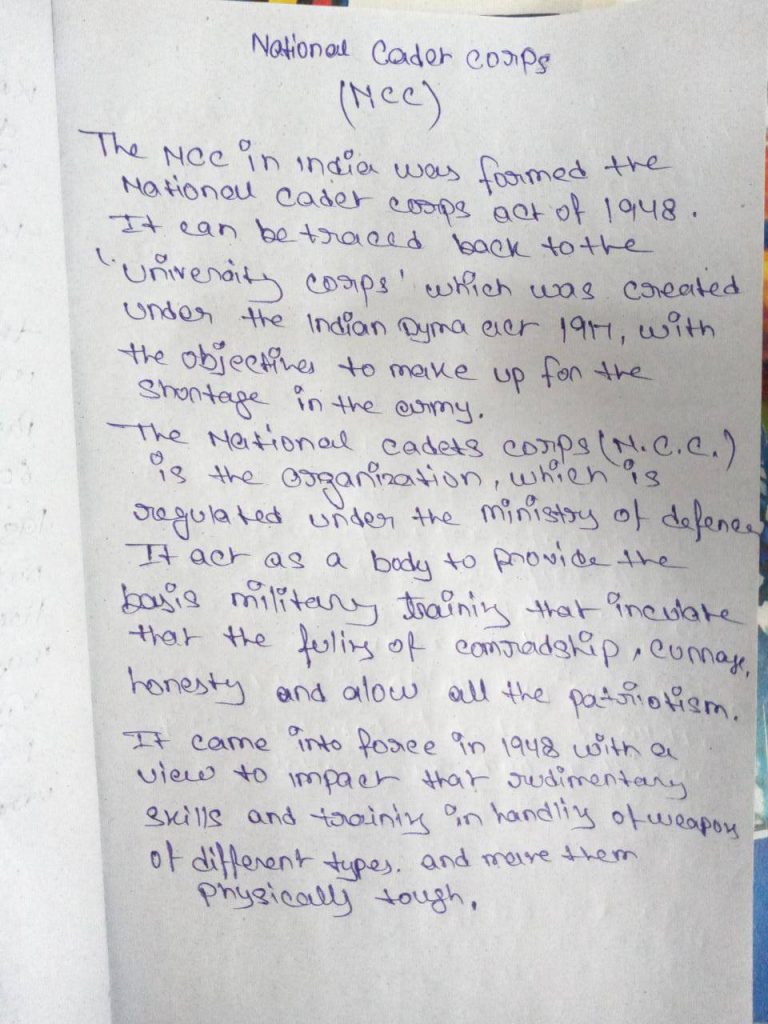 National Cadet corps
(NCC)
The NCC in india was formed the
National cadet corps act of 1948.
It can be traced back to the
"University corps' which was created
under the Indian Dyma act 1917, with
the objectives to make up for the
Shortage in the army.
The National cadets corps (N.C.C.)
is the organization, which is
regulated under the ministry of defence
It act as a body to provide the
basis military training that inculate
that the fuling of comradship, currage,
honesty and alow all the patriotism.
It came into force in 1948 with a
view to impact that rudimentary
skills and training in handling of weapons
of different types. and mare them
Physically tough.